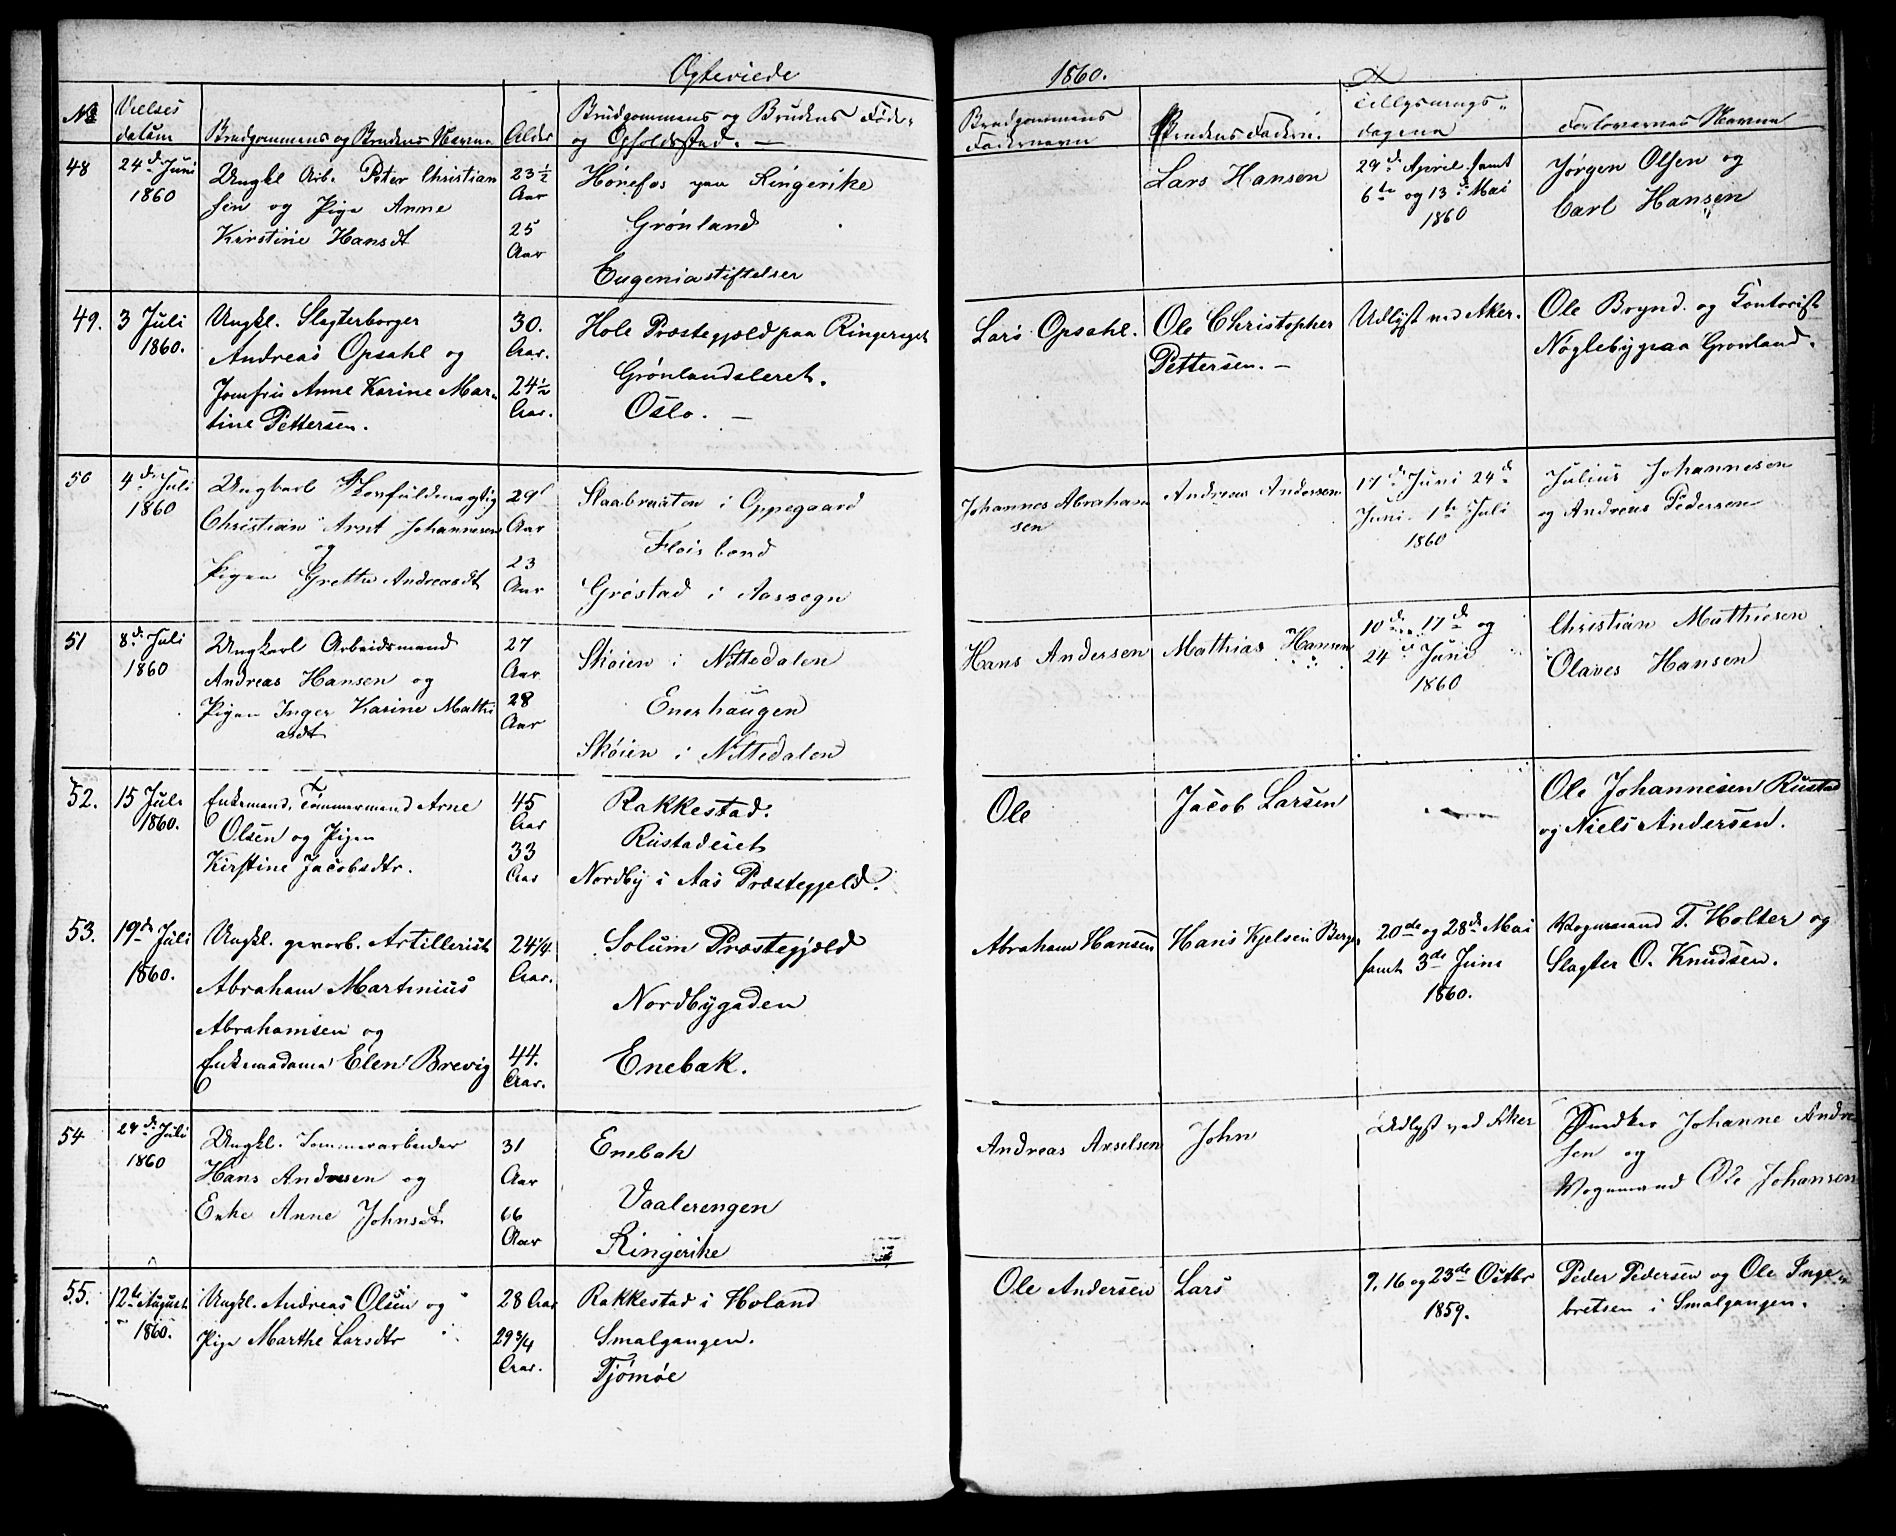 Ægteviede
1860.
No
Vielses
datum
Brudgommens og Brudens Navne
Alder
Brudgommens og Brudens Føde-
og Opholdssted. —
Brudgommens
Fadernavn
Brudens Fadern.
Tillysnings-
dagene
Forlovernes Navne
48
24de Juni
1860
Ungkl Arb. Peter Christian
sen og Pige Anne
Kirstine Hansdt
23½
Aar
25
Aar
Hønefos paa Ringerike
Grønland
Eugeniastiftelser
Lars Hansen
29de April samt
6te og 13de Mai
1860
Jørgen Olsen og
Carl Hansen
49.
3 Juli
1860.
Ungkl. Slagterborger
Andreas Opsahl og
Jomfru Anne Karine Mar-
tine Pettersen.
30.
Aar.
24½
Aar.
Hole Præstegjæld paa Ringeriget
Grønlandsleret.
Oslo. —
Lars Opsahl.
Ole Christopher
Pettersen. —
Udlyst ved Aker.
Ole Brynd. og Kontorist
Nøgleby paa Grønland.
50
4de Juli
1860
Ungkarl
Christian Arnt Johannesen
og
Pigen Grethe Andreasdt
29
Aar
23
Aar
Slaabraaten i Oppegaard
Floisbond
Grøstad i Aassogn
Johannes Abraham
sen
Andreas Andersen
17de Juni 24de
Juni 1te Juli
1860
Julius Johannesen
og Andreas Pedersen
51
8de Juli
1860
Ungkarl Arbeidsmand
Andreas Hansen og
Pigen Inger Karine Mathi
asdt
27
Aar
28
Aar
Skøien i Nittedalen
Enerhaugen
Skøien i Nittedalen
Hans Andersen
Mathias Hansen
10de 17de og
24de Juni
1860
Christian Mathiesen
Olaves Hansen
52.
15 Juli
1860.
Enkemand, Tømmermand Arne
Olsen og Pigen
Kirstine Jacobsdtr.
45
Aar
33
Aar
Rakkestad.
Rustadeiet
Nordby i Aas Præstegjeld.
Ole
Jacob Larsen
Ole Johannesen Rustad
og Niels Andersen.
53.
19de Juli
1860.
Ungkl. gevorb. Artillerist
Abraham Martinius
Abrahamsen og
Enkemadame Elen Brevig
24¼
Aar.
44.
Aar.
Solum Præstegjæld
Nordbygaden
Enebak.
Abraham Hansen
Hans Kjelsen Berger
20de og 28de Mai
samt 3de Juni
1860.
Vognmand T. Holter og
Slagter O. Knudsen.
54
24de Juli
1860
Ungkl. Tømmerarbeider
Hans Andresen og
Enke Anne Johnsdt
31
Aar
66
Aar
Enebak
Vaalerengen
Ringerike
Andreas Axselsen
John
Udlyst ved Aker
Snedker Johanne Andre
sen og
Vognmand Ole Johansen
55.
12te August
1860.
Ungkl. Andreas Olsen og
Pige Marthe Larsdtr
28 Aar
29¾
Aar.
Rakkestad i Høland
Smalgangen.
Tjømøe
Ole Andersen
Lars
9, 16 og 23de Octbr
1859.
Peder Pedersen og Ole Inge-
bretsen i Smalgangen.